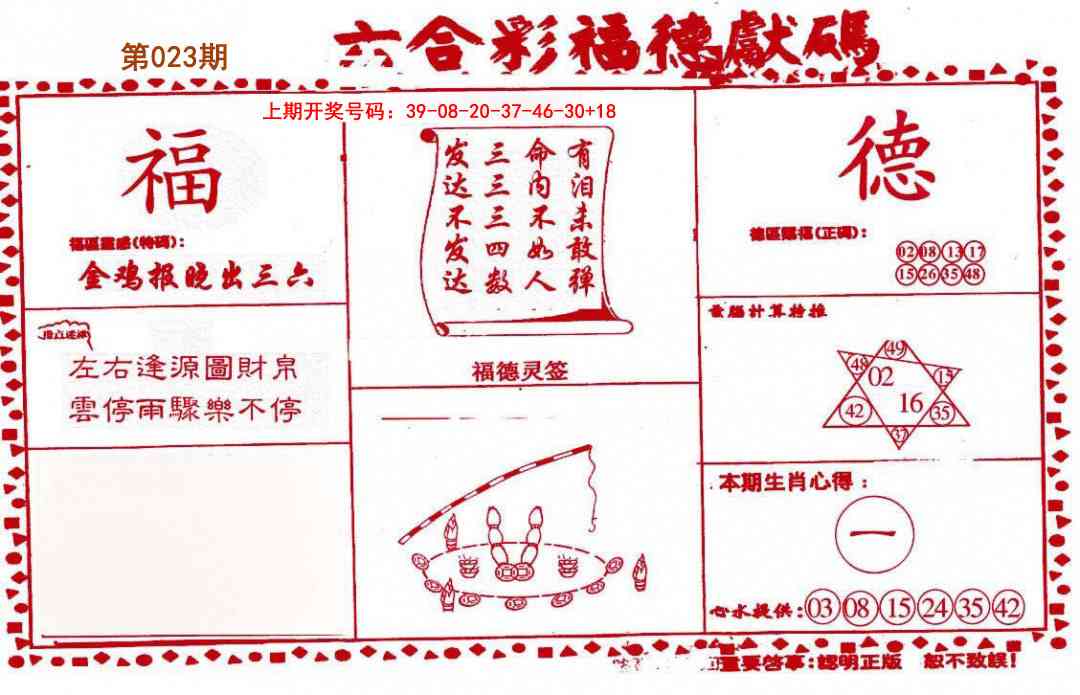 六合彩福德獻碼
第023期
上期开奖号码：39-08-20-37-46-30+18
福
福區靈感(特碼)：
金鸡报晓出三六
左右逢源圖財帛
雲停雨驟樂不停
有泪未敢弹
命内不如人
三三三四数
发达不发达
福德灵签
德
德區賜福(正碼)：
02 08 13 17
15 26 35 48
電腦計算特推
49
48 02 15
42 16 35
37
本期生肖心得：
一
心水提供：03 08 15 24 35 42
重要啓事：認明正版 恕不致誤！